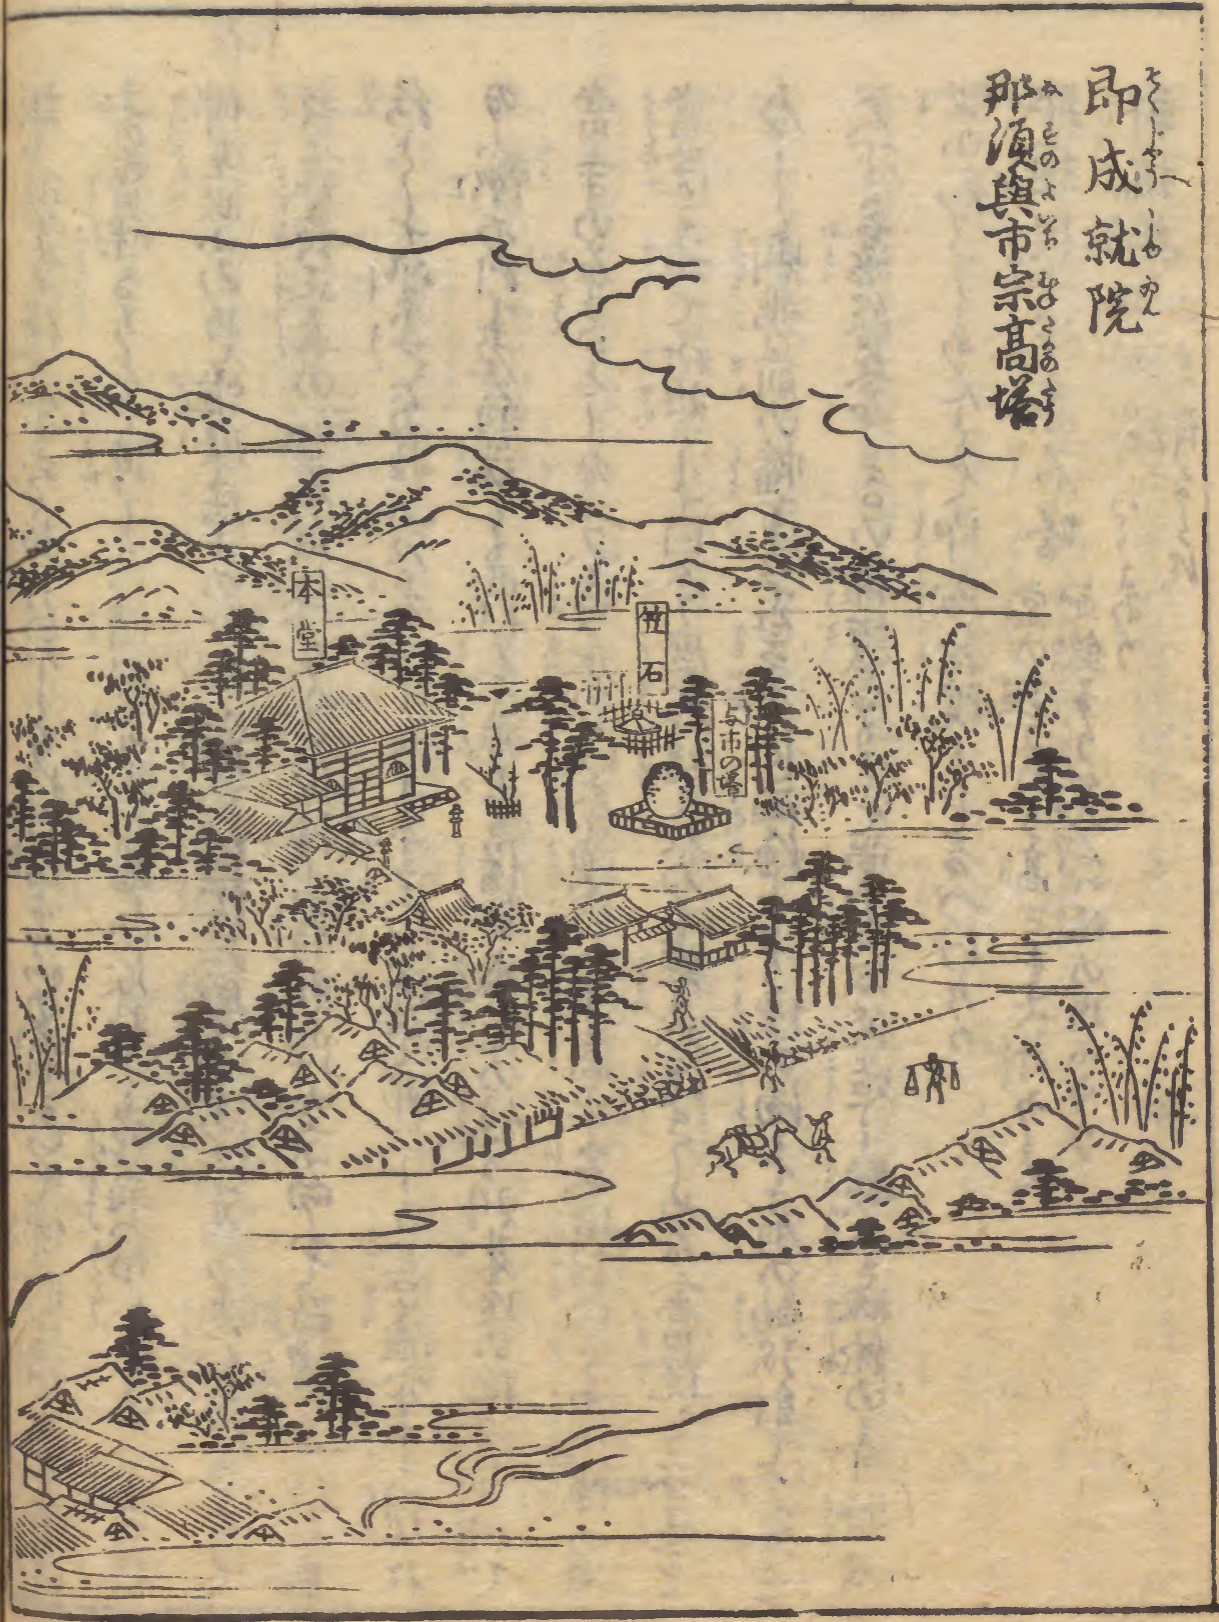 即成就院
そくじやうじゆゐん
那須與市宗高塔
なすのよいちむねたかのたう
本堂
笠石
与市の塔